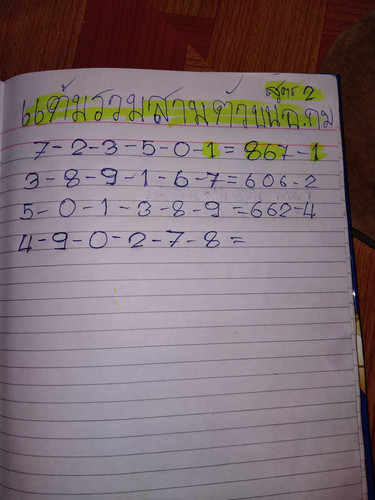 สูตร 2
แต้มรวมสามตัวบนฉ.กม
7-2-3-5-0-1=867-1
3-8-9-1-6-7=606-2
5-0-1-3-8-9=662-4
4-9-0-2-7-8=